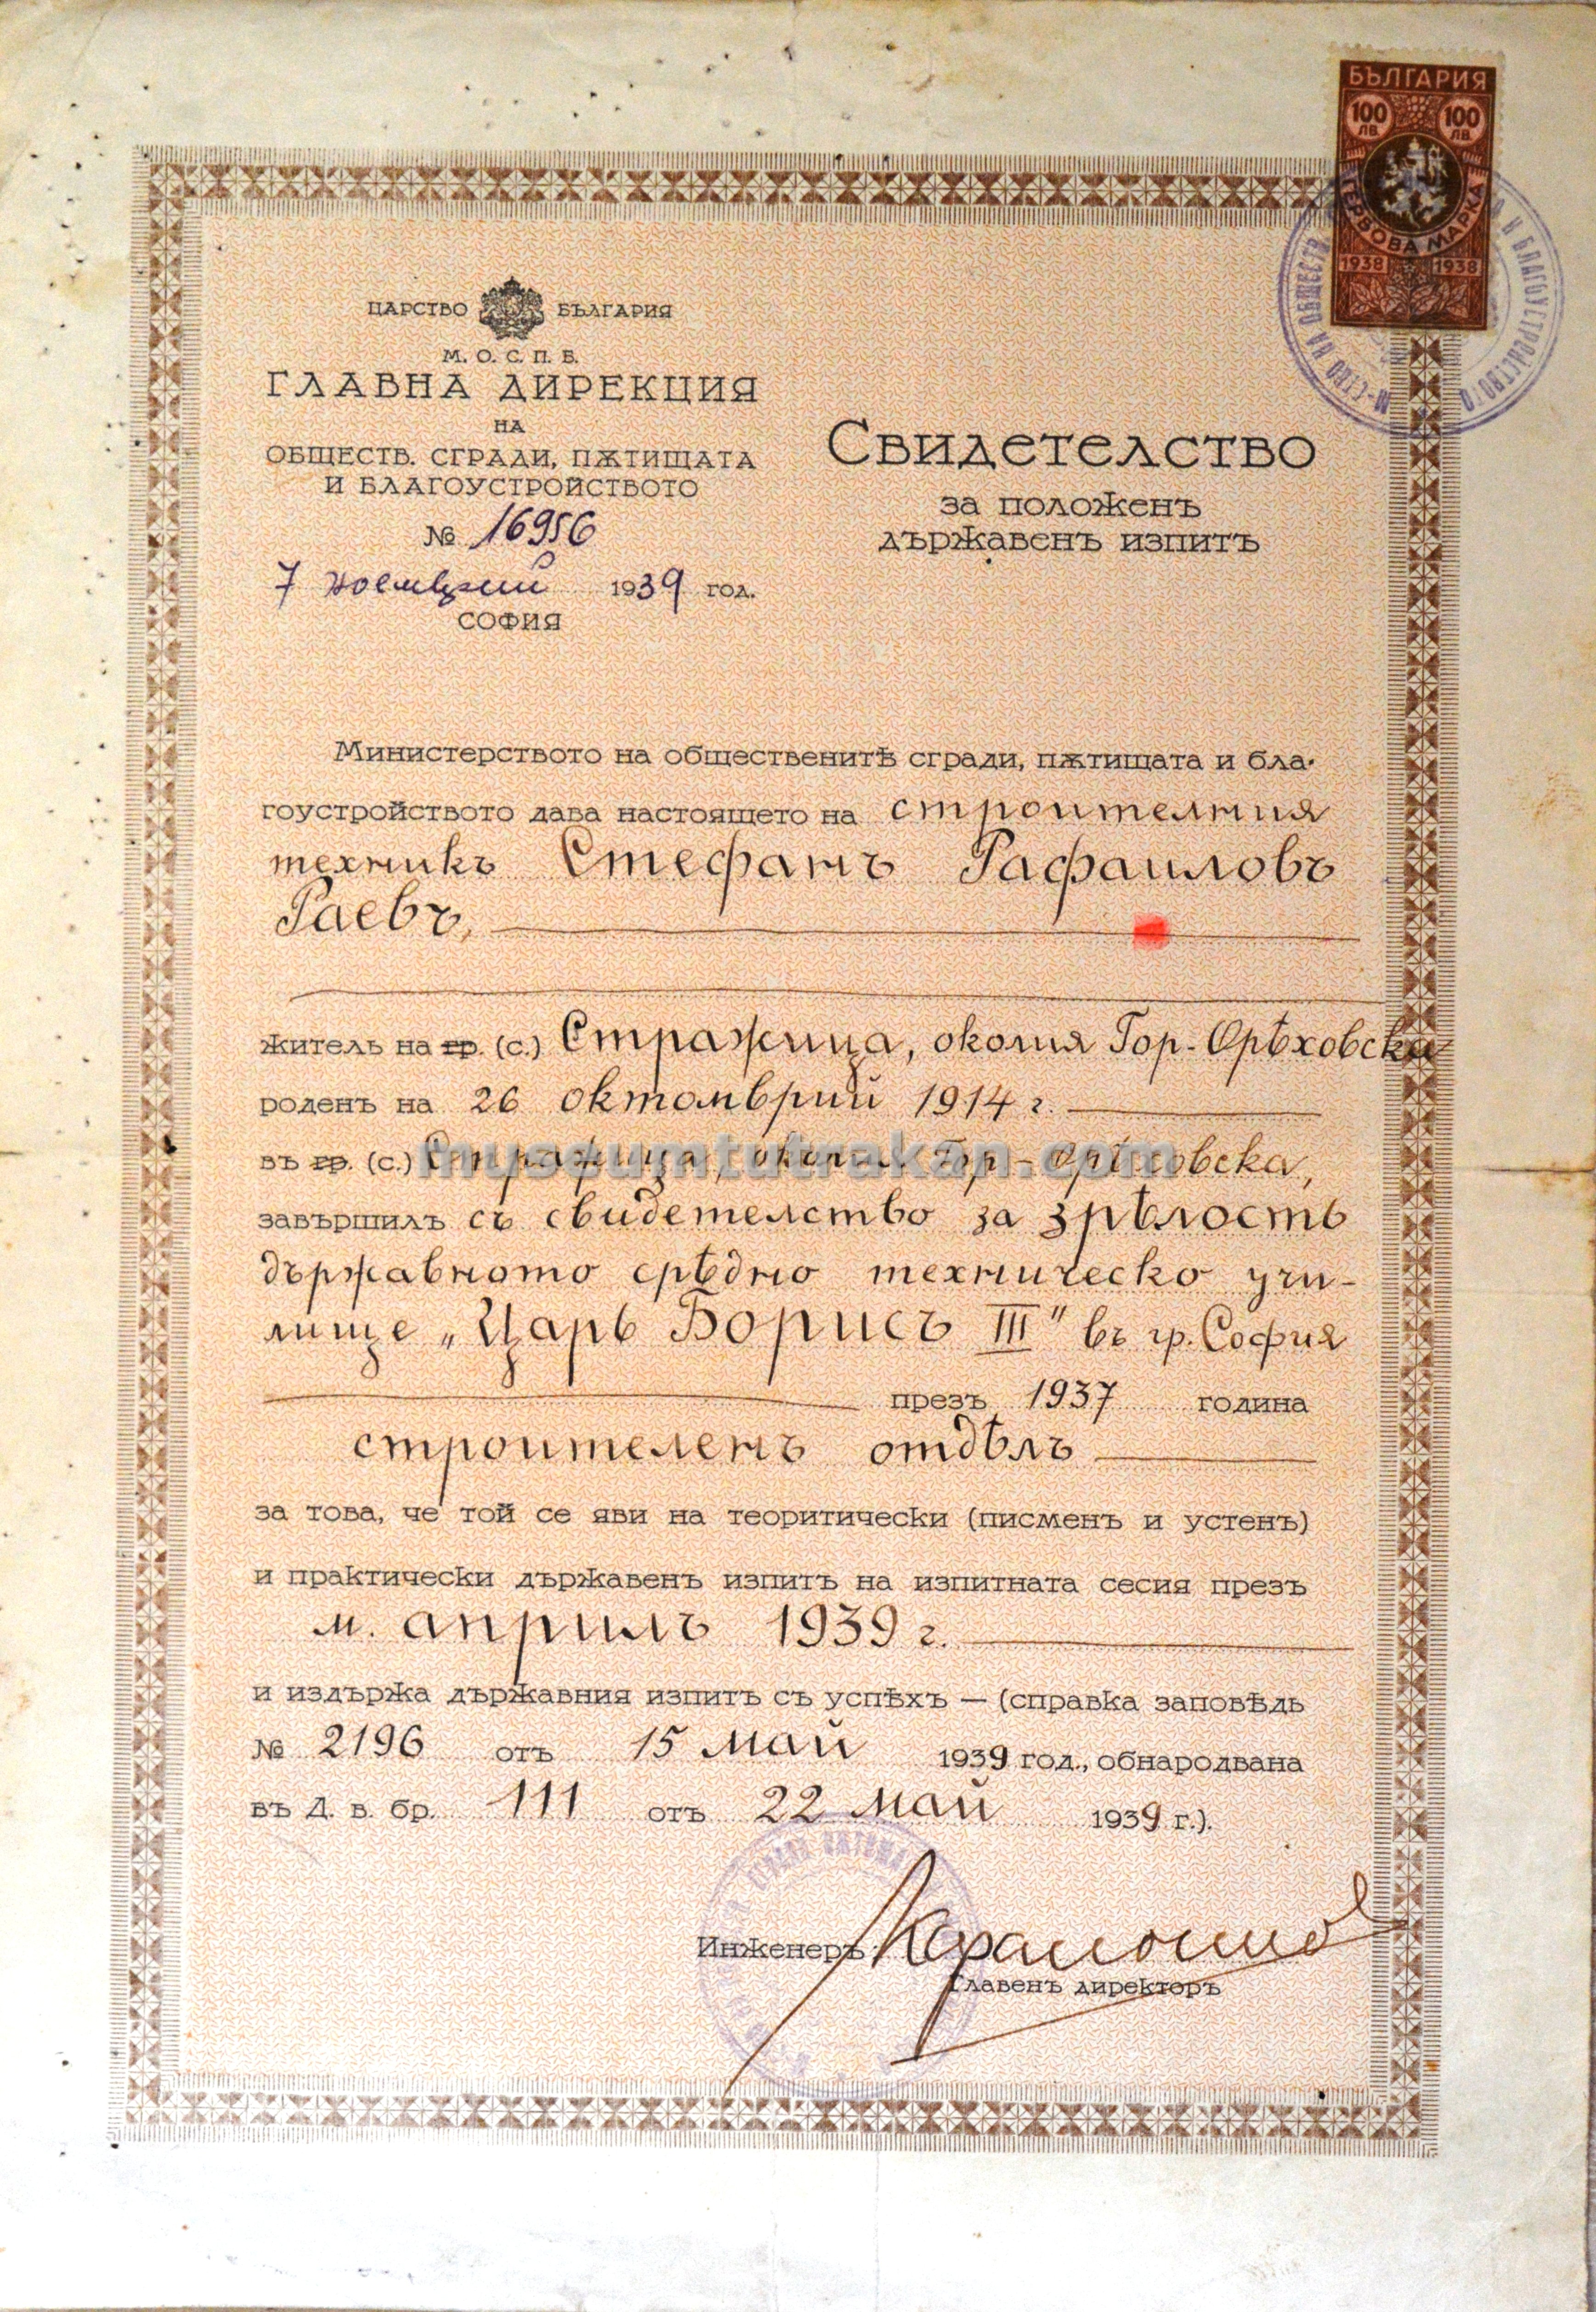 БЪЛГАРИЯ
100 ЛВ. 100 ЛВ.
ГЕРБОВА МАРКА
1938 1938
М-СТВО НА ОБЩЕСТВ. И БЛАГОУСТРОЙСТВОТО
ЦАРСТВО БЪЛГАРИЯ
М. О. С. П. Б.
ГЛАВНА ДИРЕКЦИЯ
НА
ОБЩЕСТВ. СГРАДИ, ПѪТИЩАТА
И БЛАГОУСТРОЙСТВОТО
№ 16956
7 ноемврий 1939 год.
СОФИЯ
Свидетелство
за положенъ
държавенъ изпитъ
Министерството на общественитѣ сгради, пѫтищата и бла-
гоустройството дава настоящето на строителния
техникъ Стефанъ Рафаиловъ
Раевъ,
житель на гр. (с.) Стражица, околия Гор.-Орѣховска
роденъ на 26 октомврий 1914 г.
въ гр. (с.) Стражица, околия Гор-Орѣховска,
museumtutrakan.com
завършилъ съ свидетелство за зрѣлость
държавното срѣдно техническо учи-
лище „Царь Борисъ III" въ гр. София
презъ 1937 година
строителенъ отдѣлъ
за това, че той се яви на теоритически (писменъ и устенъ)
и практически държавенъ изпитъ на изпитната сесия презъ
м. априлъ 1939 г.
и издържа държавния изпитъ съ успѣхъ — (справка заповѣдь
№ 2196 отъ 15 май 1939 год., обнародвана
въ Д. в. бр. 111 отъ 22 май 1939 г.).
Инженеръ:
Главенъ директоръ